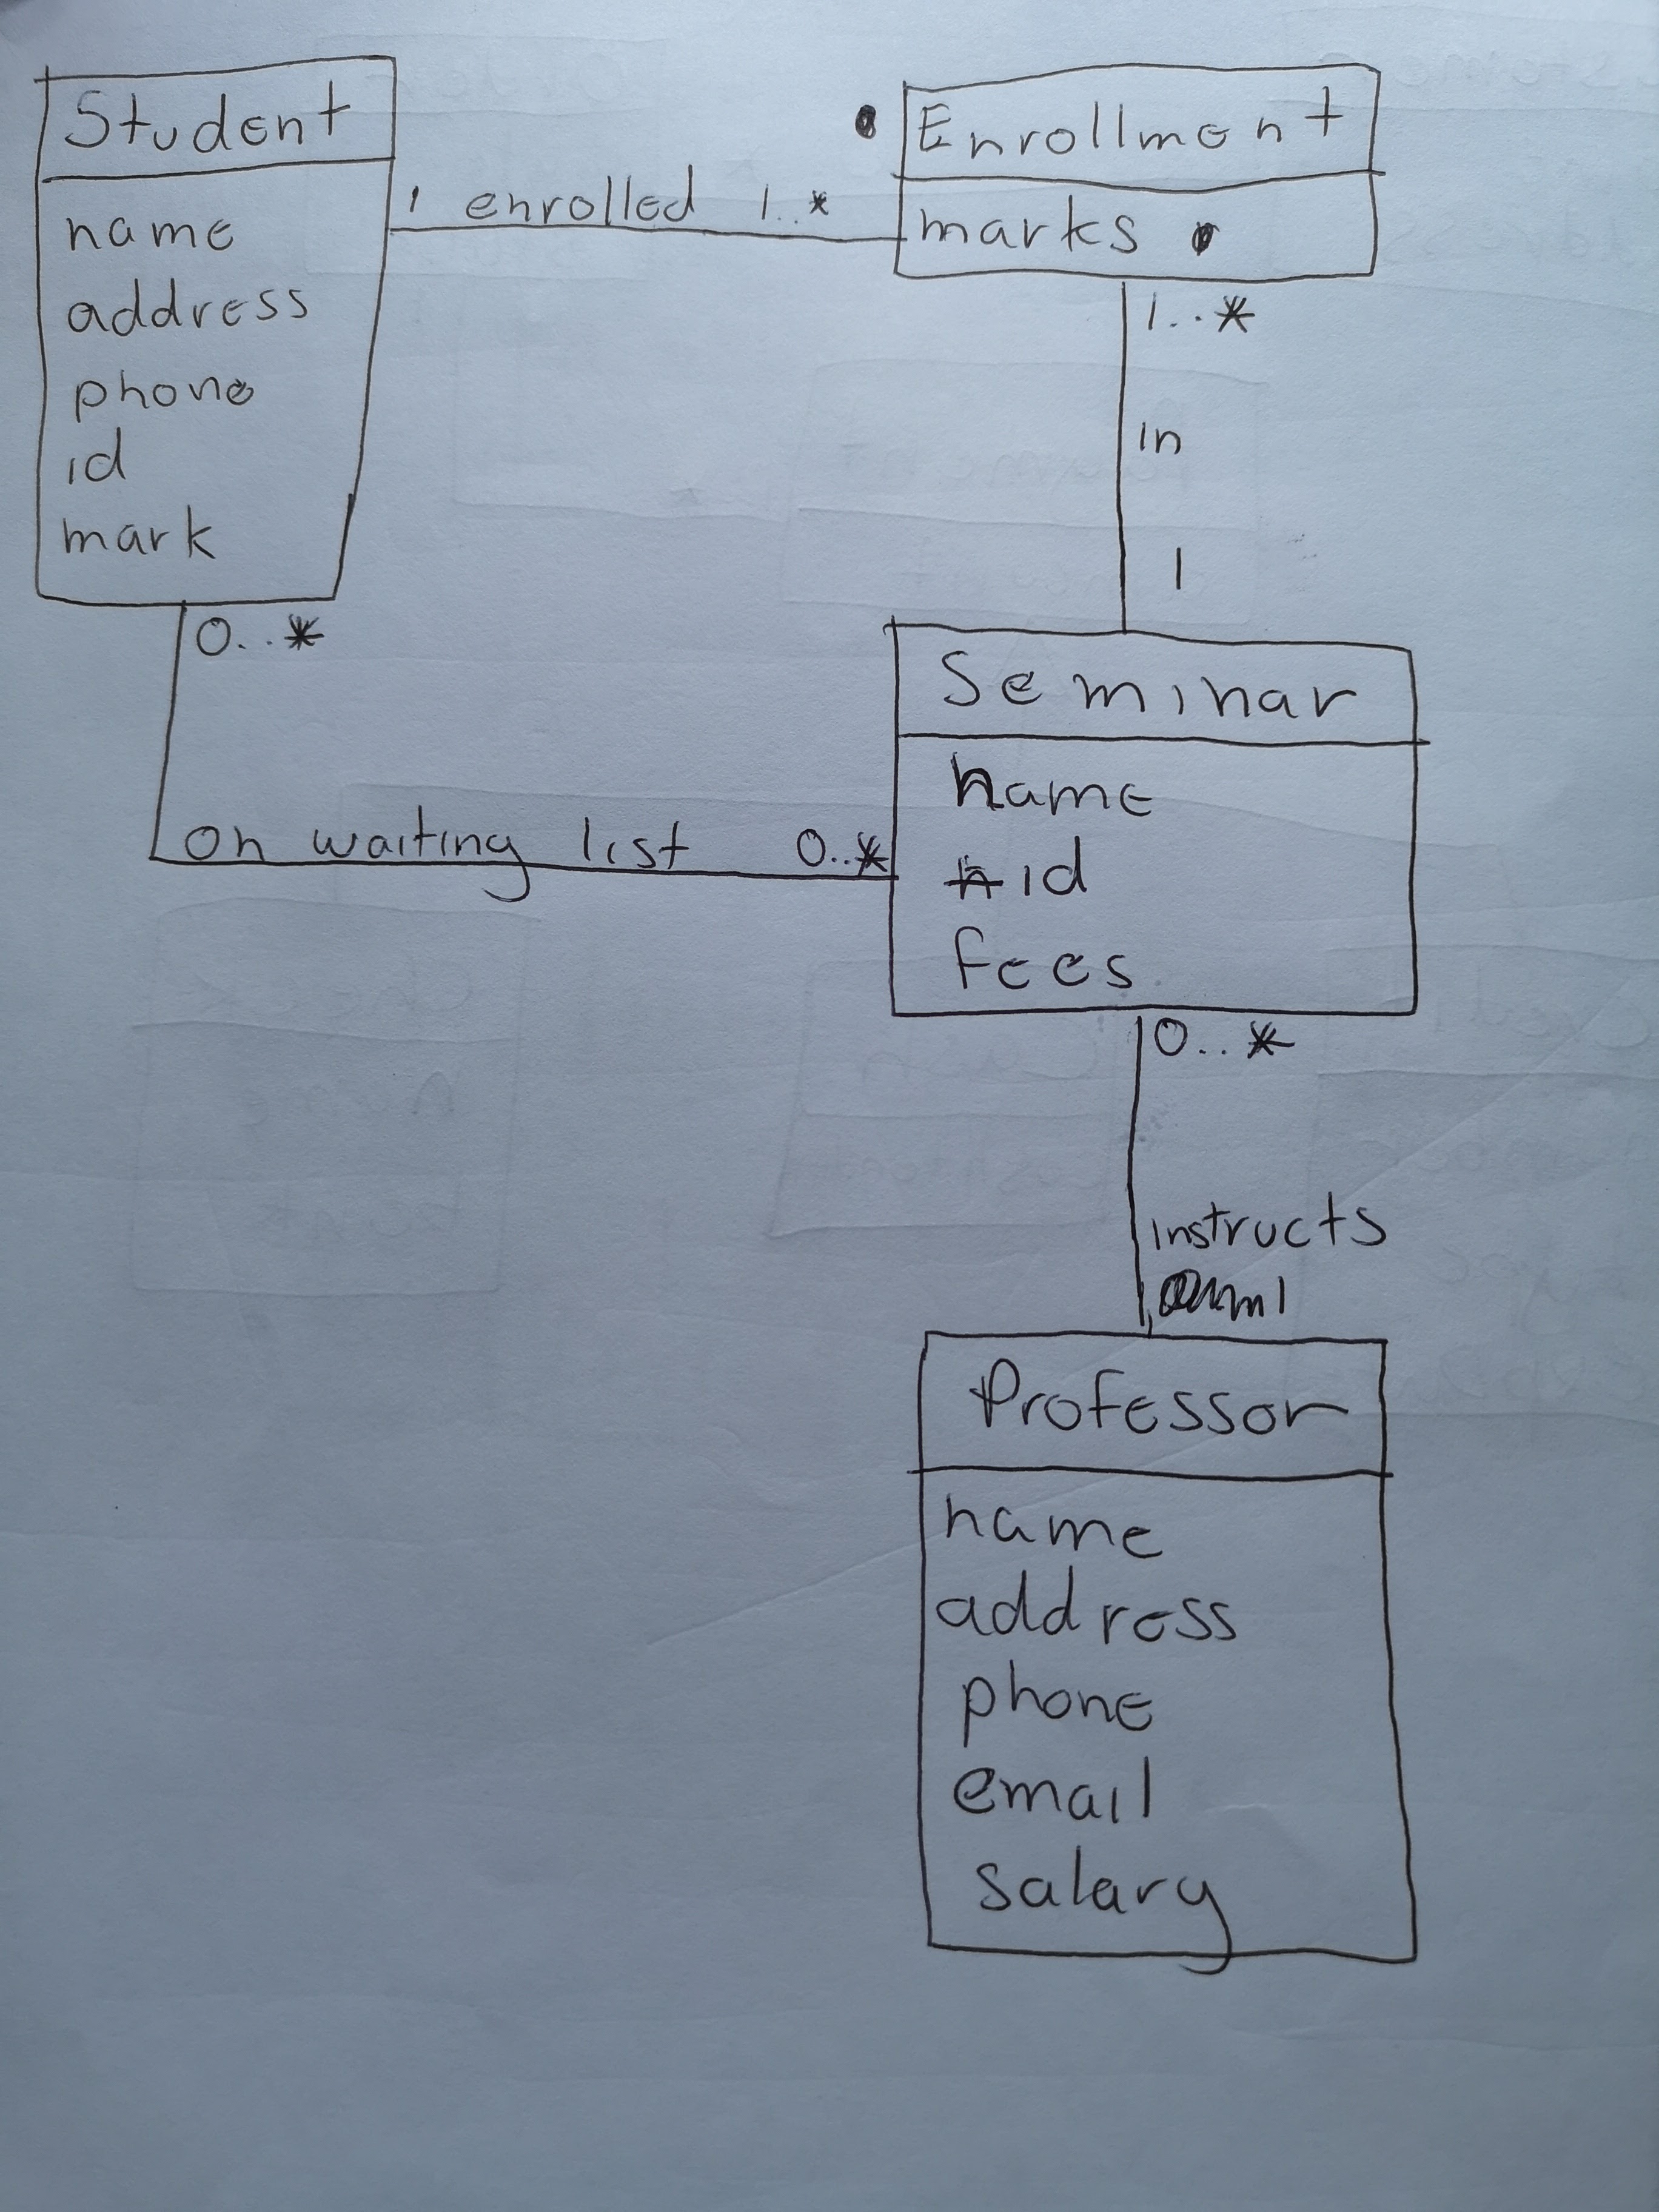 Student
name
address
phone
id
mark
1 enrolled 1..*
Enrollment
marks
1..*
in
1
0..*
on waiting list 0..*
Seminar
name
id
fees
0..*
instructs
1
Professor
name
address
phone
email
salary